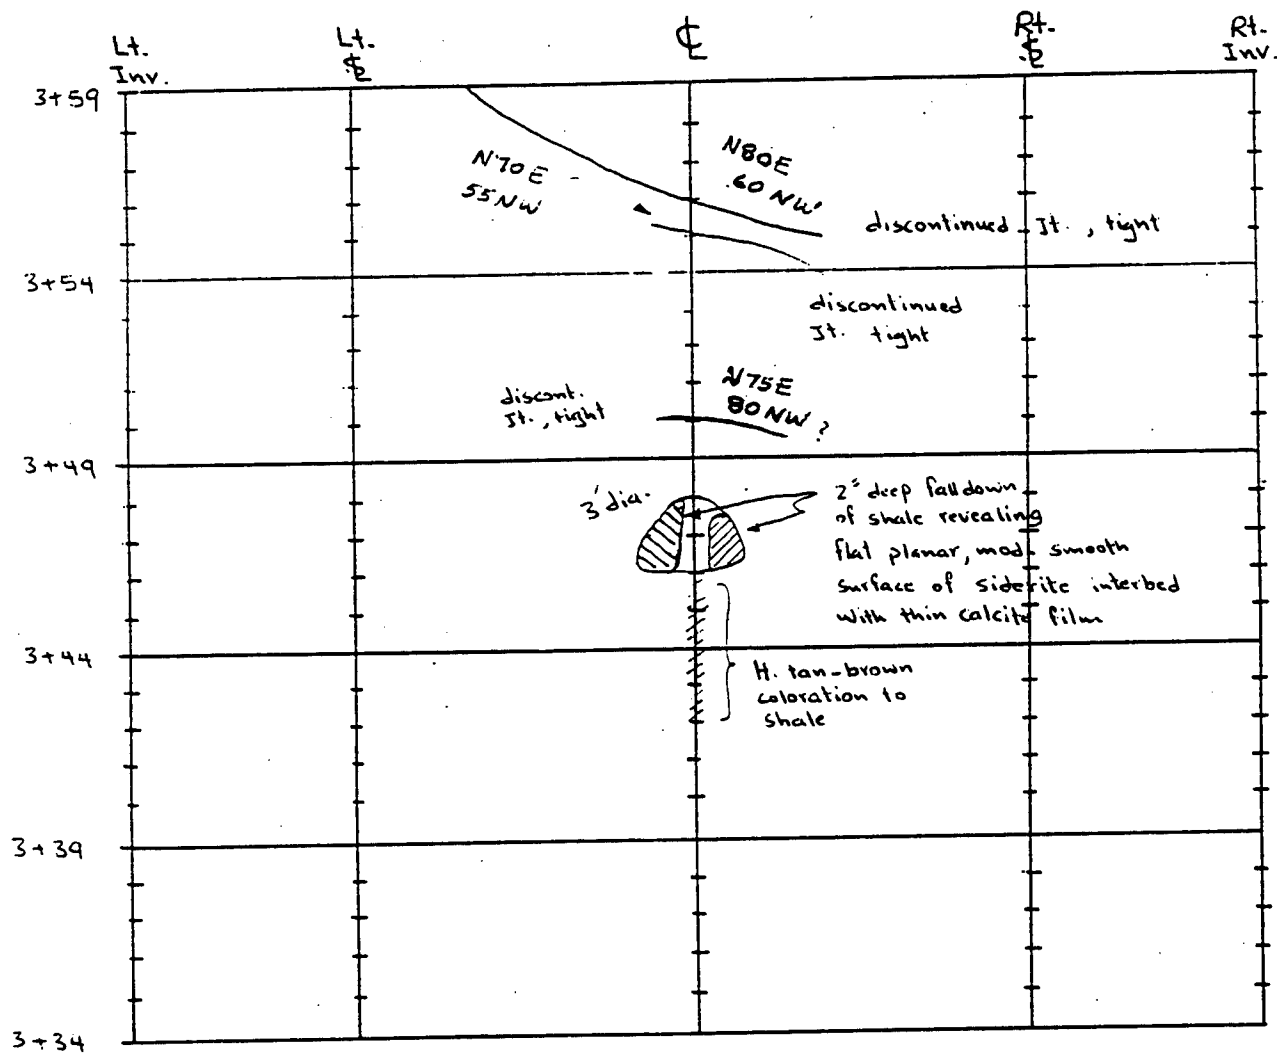 Lt.
Inv.
Lt.
℄
Rt.
Rt.
Inv.
3+59
N70E
55NW
N80E
60 NW
discontinued Jt. , tight
3+54
discontinued
Jt. tight
discont.
Jt., tight
N75E
80 NW ?
3+49
3' dia.
2" deep falldown
of shale revealing
flat planar, mod. smooth
surface of siderite interbed
with thin calcite film
3+44
tan-brown
coloration to
shale
3+39
3+34